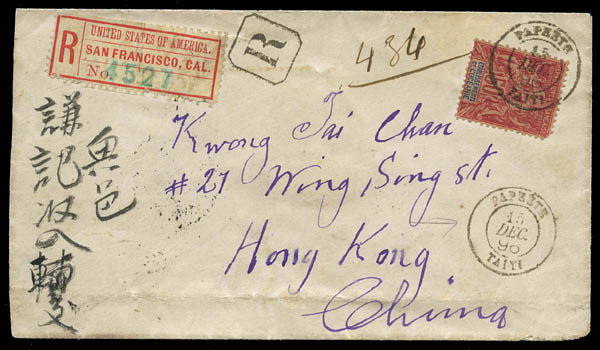 UNITED STATES OF AMERICA.
R
SAN FRANCISCO, CAL.
No. 4527
R
434
PAPEETE
15
DEC.
96
TAITI
Kwong Tai Chan
# 27 Wing Sing st.
Hong Kong
China
PAPEETE
15
DEC.
96
TAITI
謙記收入轉交